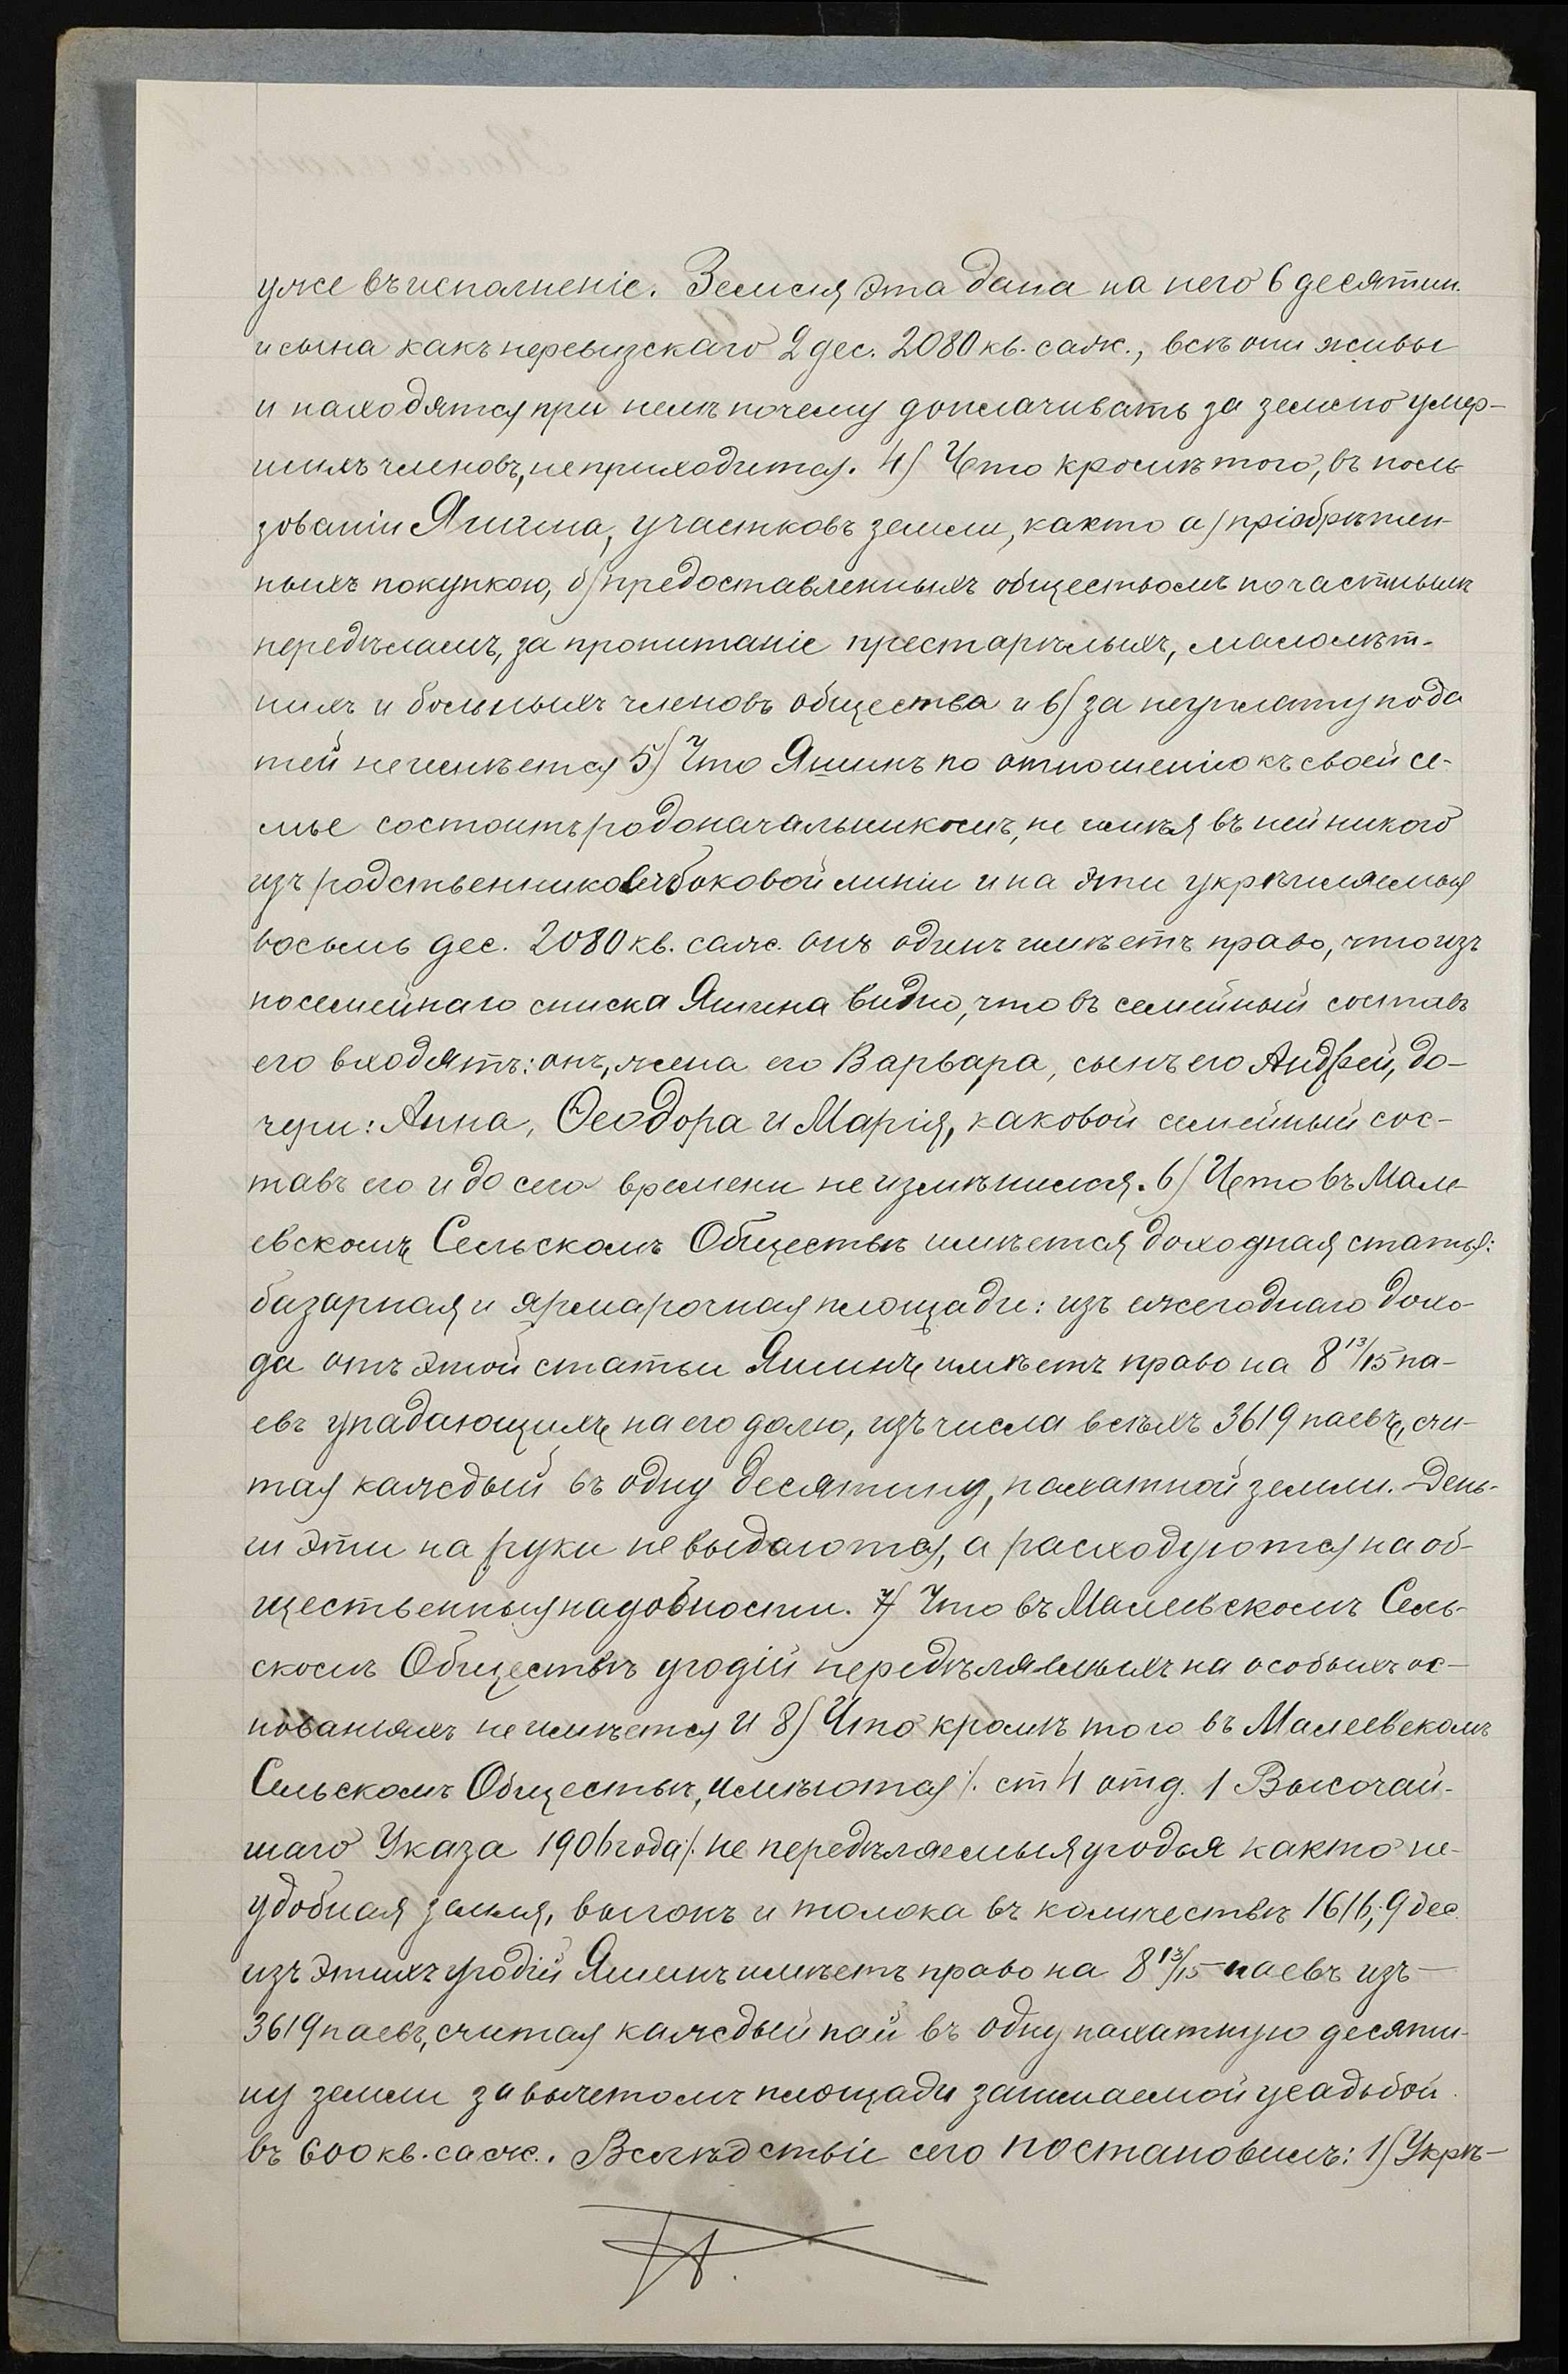 уже въ исполненіе. Земля эта дана на него 6 десятин.
и сына какъ неревизскаго 2 дес. 2080 кв. саж., всѣ они живы
и находятся при немъ почему доплачивать за землю умер-
шихъ членовъ, не приходится. 4) Что кромѣ того, въ поль-
зованіи Яшина, участковъ земли, както а) пріобрѣтен-
ныхъ покупкою, б) предоставленныхъ обществомъ по частнымъ
передѣламъ, за пропитаніе престарѣлыхъ, малолѣт-
нихъ и больныхъ членовъ общества и в) за неуплату пода
тей не имѣется 5) Что Яшинъ по отношенію къ своей се-
мье состоитъ родоначальникомъ, не имѣя въ ней никого
изъ родственниковъ боковой линіи и на эти укрѣпляемыя
восемь дес. 2080 кв. саж. онъ одинъ имѣетъ право, что изъ
посемейнаго списка Яшина видно, что въ семейный составъ
его входятъ: онъ, жена его Варвара, сынъ его Андрей, до-
чери: Анна, Ѳеодора и Марія, каковой семейный сос-
тавъ его и до сего времени не измѣнился. 6) Что въ Мале-
евскомъ Сельскомъ Обществѣ имѣется доходная статья:
базарная и ярмарочная площади: изъ ежегоднаго дохо-
да отъ этой статьи Яшинъ имѣетъ право на 8 13/15 па-
евъ упадающихъ на его долю, изъ числа всѣхъ 3619 паевъ, счи-
тая каждый въ одну десятину, пахатной земли. День-
ги эти на руки не выдаются, а расходуются на об-
щественныя надобности. 7) Что въ Малеевскомъ Сель-
скомъ Обществѣ угодій передѣляемыхъ на особыхъ ос-
нованіяхъ не имѣется и 8) Что кромѣ того въ Малеевскомъ
Сельскомъ Обществѣ, имѣются /. ст 4 отд. 1 Высочай-
шаго Указа 1906 года/. не передѣляемыя угодья както не-
удобная земля, выгонъ и толока въ количествѣ 1616,9 дес.
изъ этихъ угодій Яшинъ имѣетъ право на 8 13/15 паевъ изъ
3619 паевъ, считая каждый пай въ одну пахатную десяти-
ну земли за вычетомъ площади занимаемой усадьбой
въ 600 кв. саж.. Вслѣдствіе сего постановилъ: 1) Укрѣ-